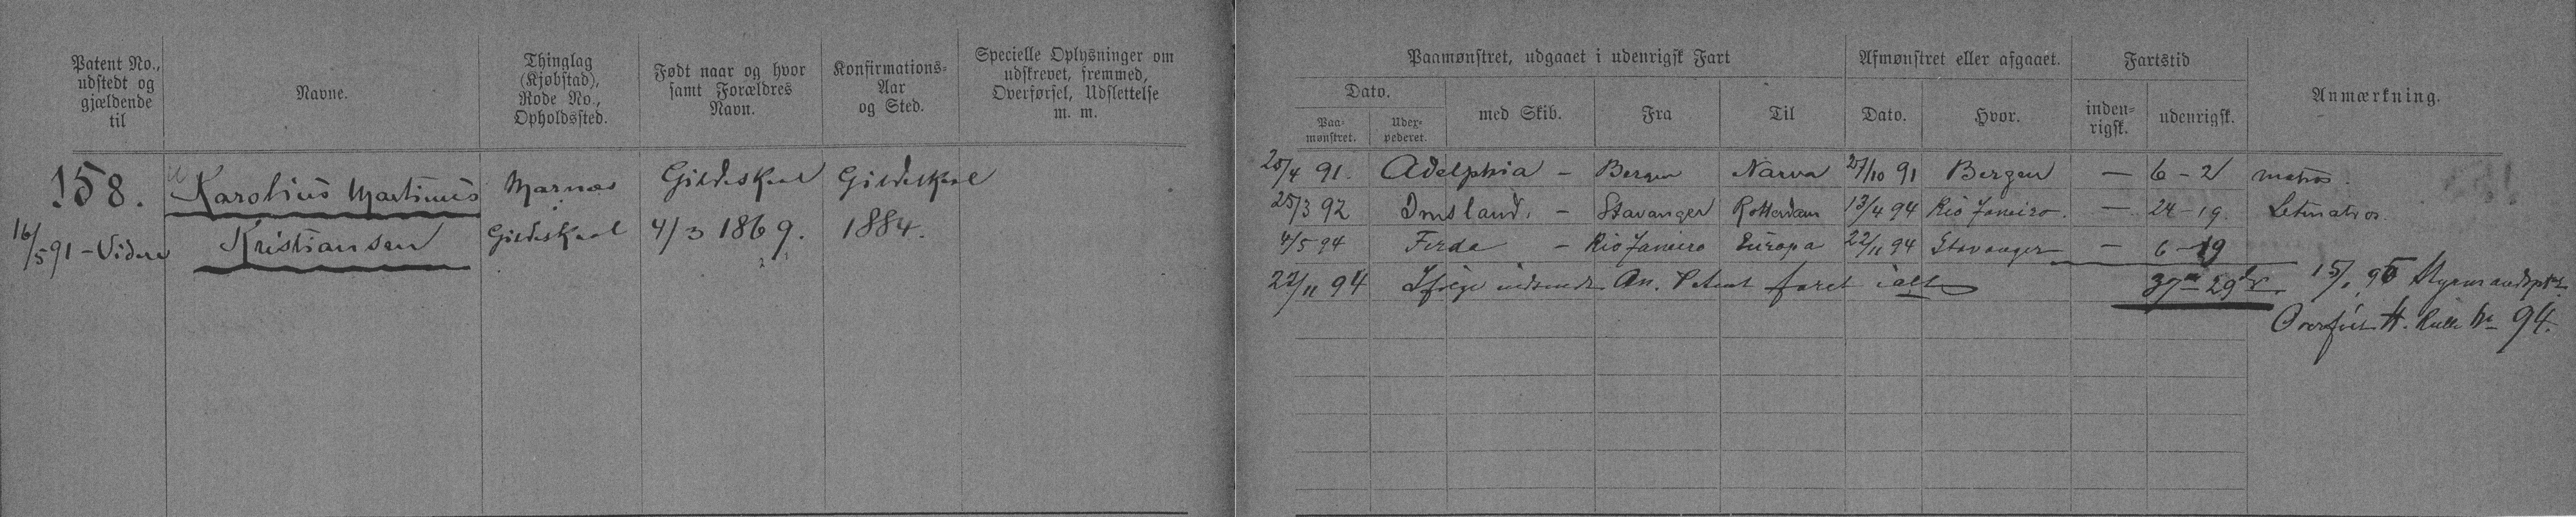 Patent No., udstedt og gjældende til
Navne.
Thinglag (Kjøbstad), Rode No., Opholdssted.
Født naar og hvor samt Forældres Navn.
Konfirmations-Aar og Sted.
Specielle Oplysninger om udskrevet, fremmed, Overførsel, Udslettelse m. m.
158.
16/5 91 - Videre
Karolius Martinus
Kristiansen
Marnæs
Gildeskaal
Gildeskaal
4/3 1869.
Gildeskaal
1884.
Paamønstret, udgaaet i udenrigsk Fart
Afmønstret eller afgaaet.
Fartstid
Anmærkning.
Dato.
Paa-mønstret.
Udex-pederet.
med Skib.
Fra
Til
Dato.
Hvor.
inden-rigsk.
udenrigsk.
25/4 91. Adelphia - Bergen Narva 27/10 91 Bergen - 6 - 2 matros.
25/3 92 Imsland. - Stavanger Rotterdam 13/4 94 Rio Janeiro. - 24 - 19. Letmatros
4/5 94 Ferde - Rio Janeiro Europa 22/11 94 Stavanger - 6 - 19
22/11 94 Ifølge indsendt An. Patent faret ialt 37m 29d
15/1 95 Styrmandspt.
Overført H. Rulle No 94.